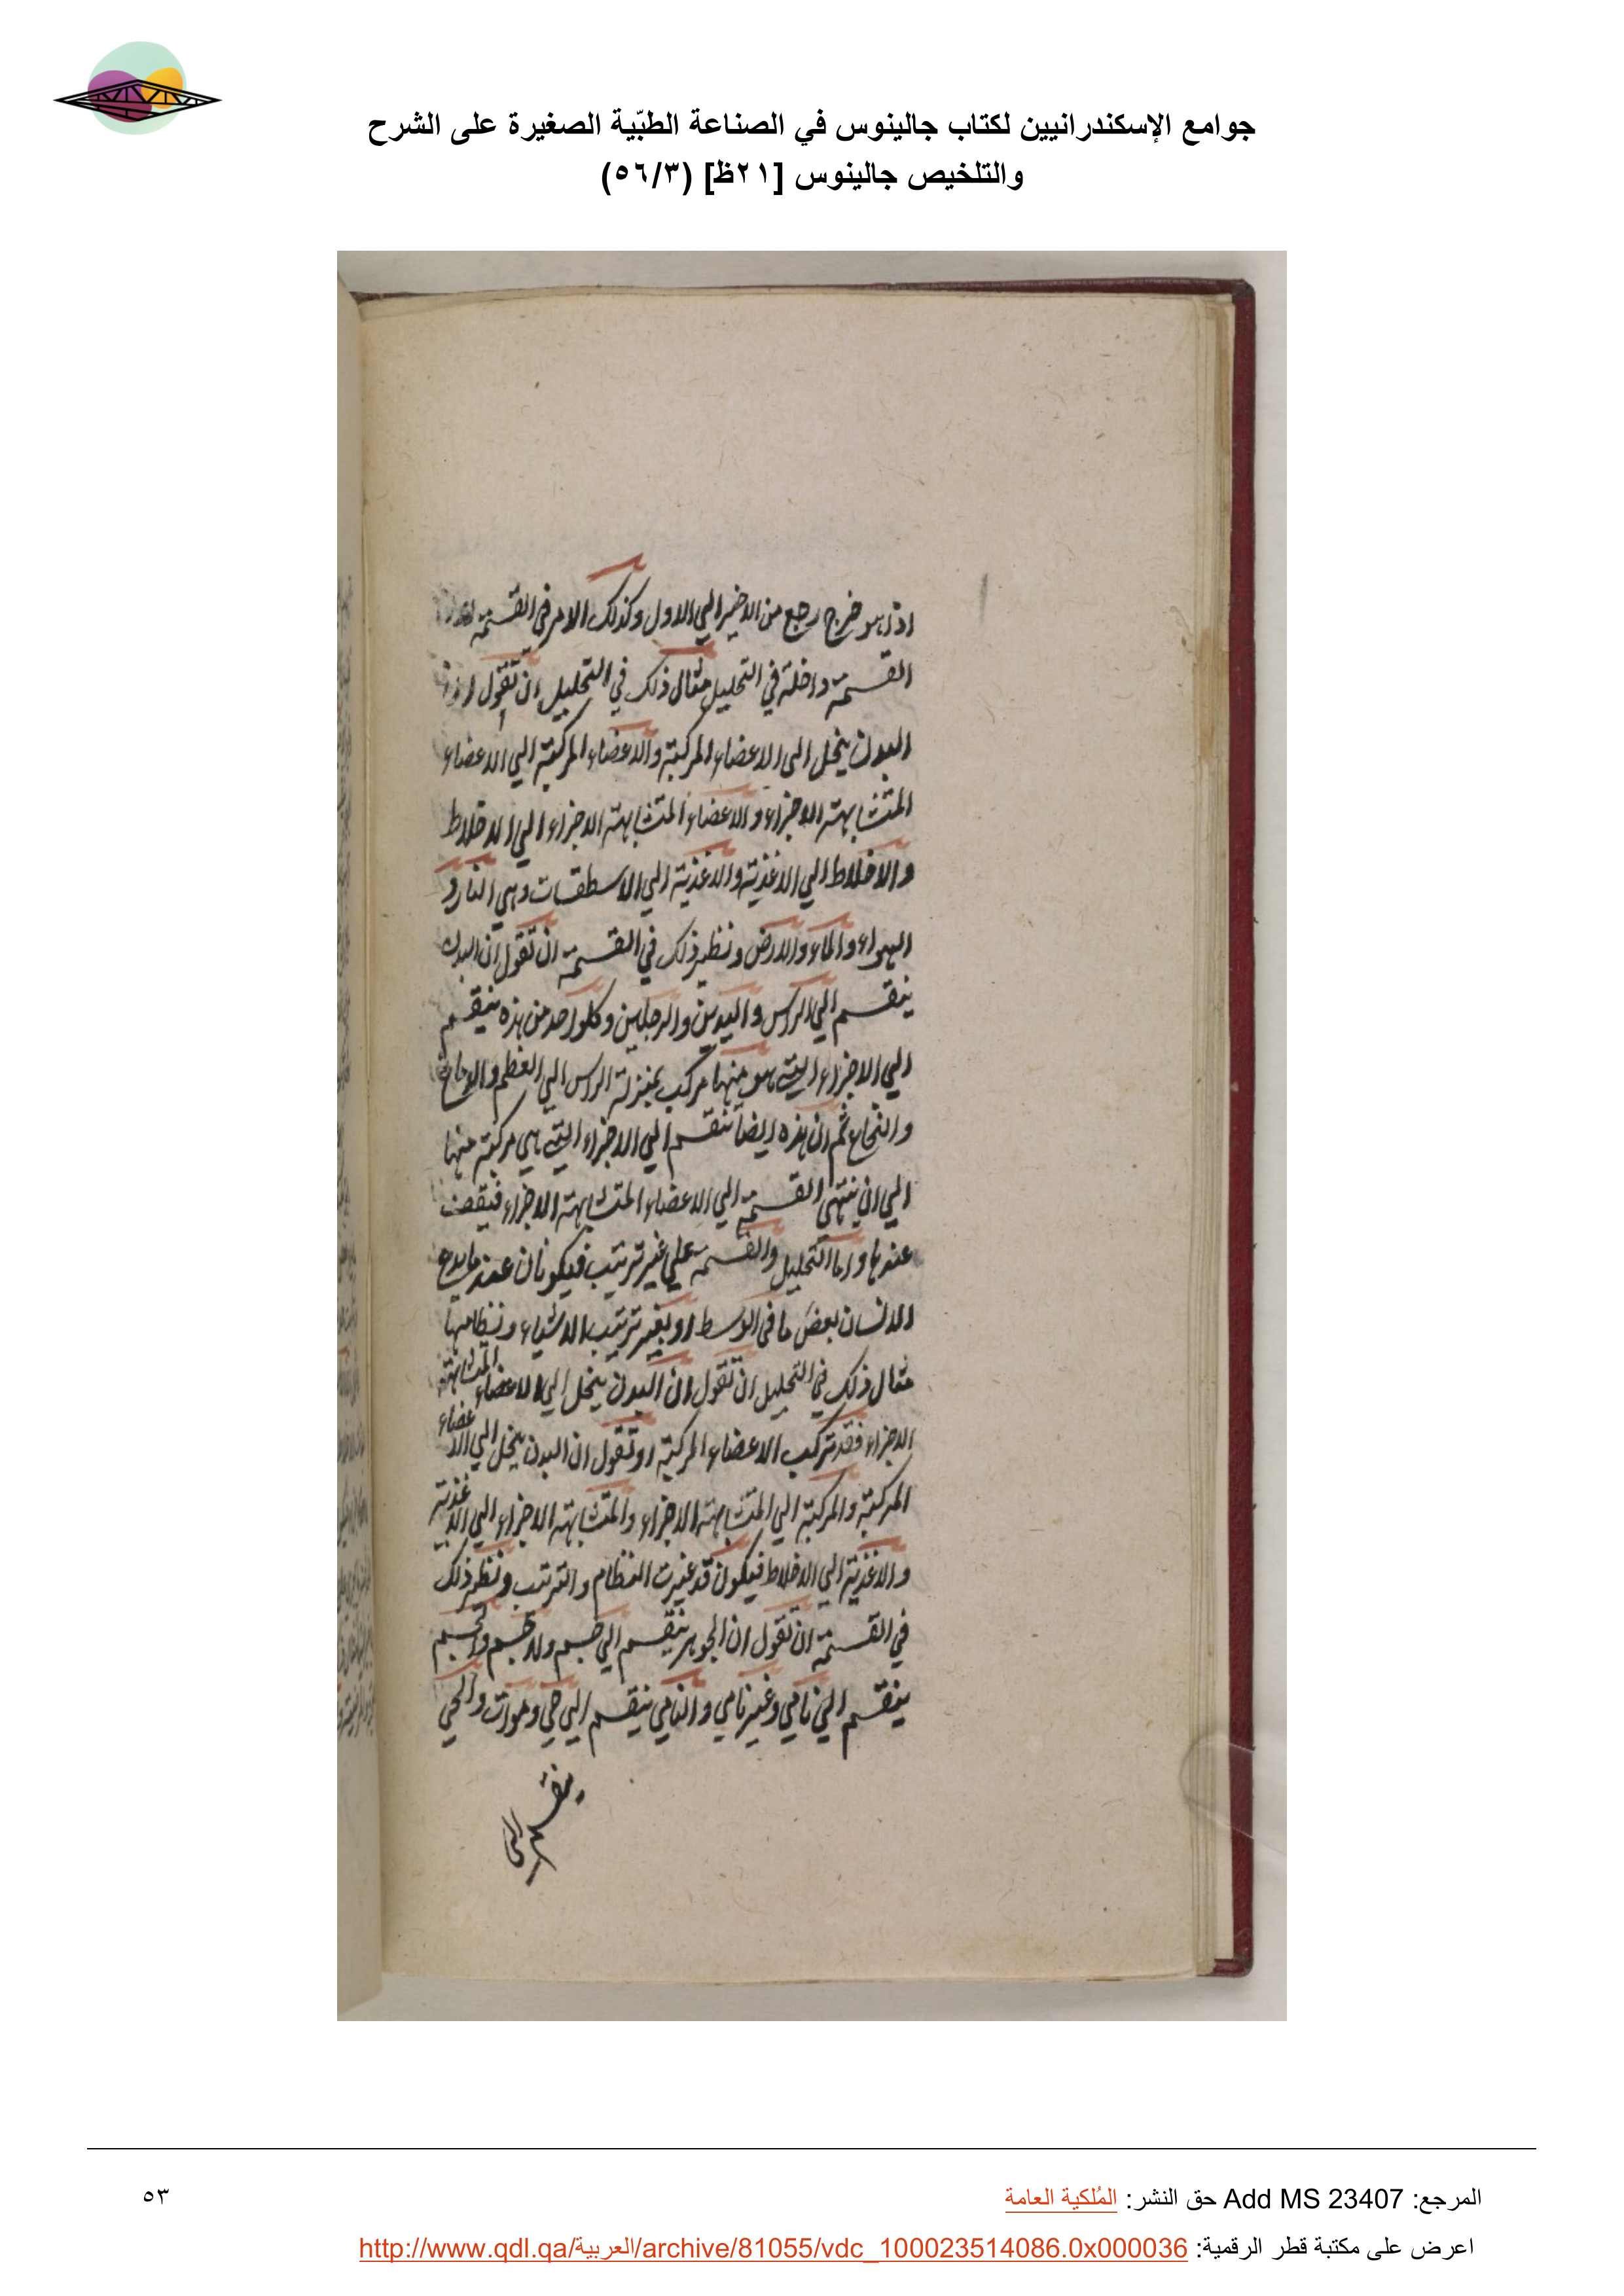 جوامع الإسكندرانيين لكتاب جالينوس في الصناعة الطبّية الصغيرة على الشرح
والتلخيص جالينوس [٢١ظ] (٥٦/٣)
اذ هو خرج رجع من الاخير الي الاول وكذلك الامر في القسمة
القسمة داخلة في التحليل مثال ذلك في التحليل ان تقول ان
البدن ينحل الى الاعضاء المركبة والاعضاء المركبة الي الاعضاء
المتشابهة الاجزاء والاعضاء المتشابهة الاجزاء الي الاخلاط
والاخلاط الي الاغذية والاغذية الي الاسطقسات وهي النار و
الهواء والماء والارض ونظير ذلك في القسمة ان تقول ان البدن
ينقسم الي الراس واليدين والرجلين وكلواحد من هذه ينقسم
الي الاجزاء التي هو منها مركب بمنزلة الراس الي العظم والدماغ
والنخاع ثم ان هذه ايضا تنقسم الي الاجزاء التي هي مركبة منها
الي ان ينتهي القسمة الي الاعضاء المتشابهة الاجزاء فيقف
عندها واما التحليل والقسمة علي غير ترتيب فيكونان عند ما يدع
الانسان بعض ما في الوسط او يغير ترتيب الاشياء ونظامها
مثال ذلك في التحليل ان تقول ان البدن ينحل الي الاعضاء المتشابهة
الاجزاء فقد تركب الاعضاء المركبة او تقول ان البدن ينحل الي الاعضاء
المركبة والمركبة الي المتشابهة الاجزاء والمتشابهة الاجزاء الي الاغذية
والاغذية الي الاخلاط فيكون قد غيرت النظام والترتيب ونظير ذلك
في القسمة ان تقول ان الجوهر ينقسم الي جسم ولاجسم والجسم
ينقسم الي نامي وغير نامي والنامي ينقسم الي حي وموات والحي
ينقسم الى
المرجع: Add MS 23407 حق النشر: المُلكية العامة
٥٣
اعرض على مكتبة قطر الرقمية: http://www.qdl.qa/العربية/archive/81055/vdc_100023514086.0x000036